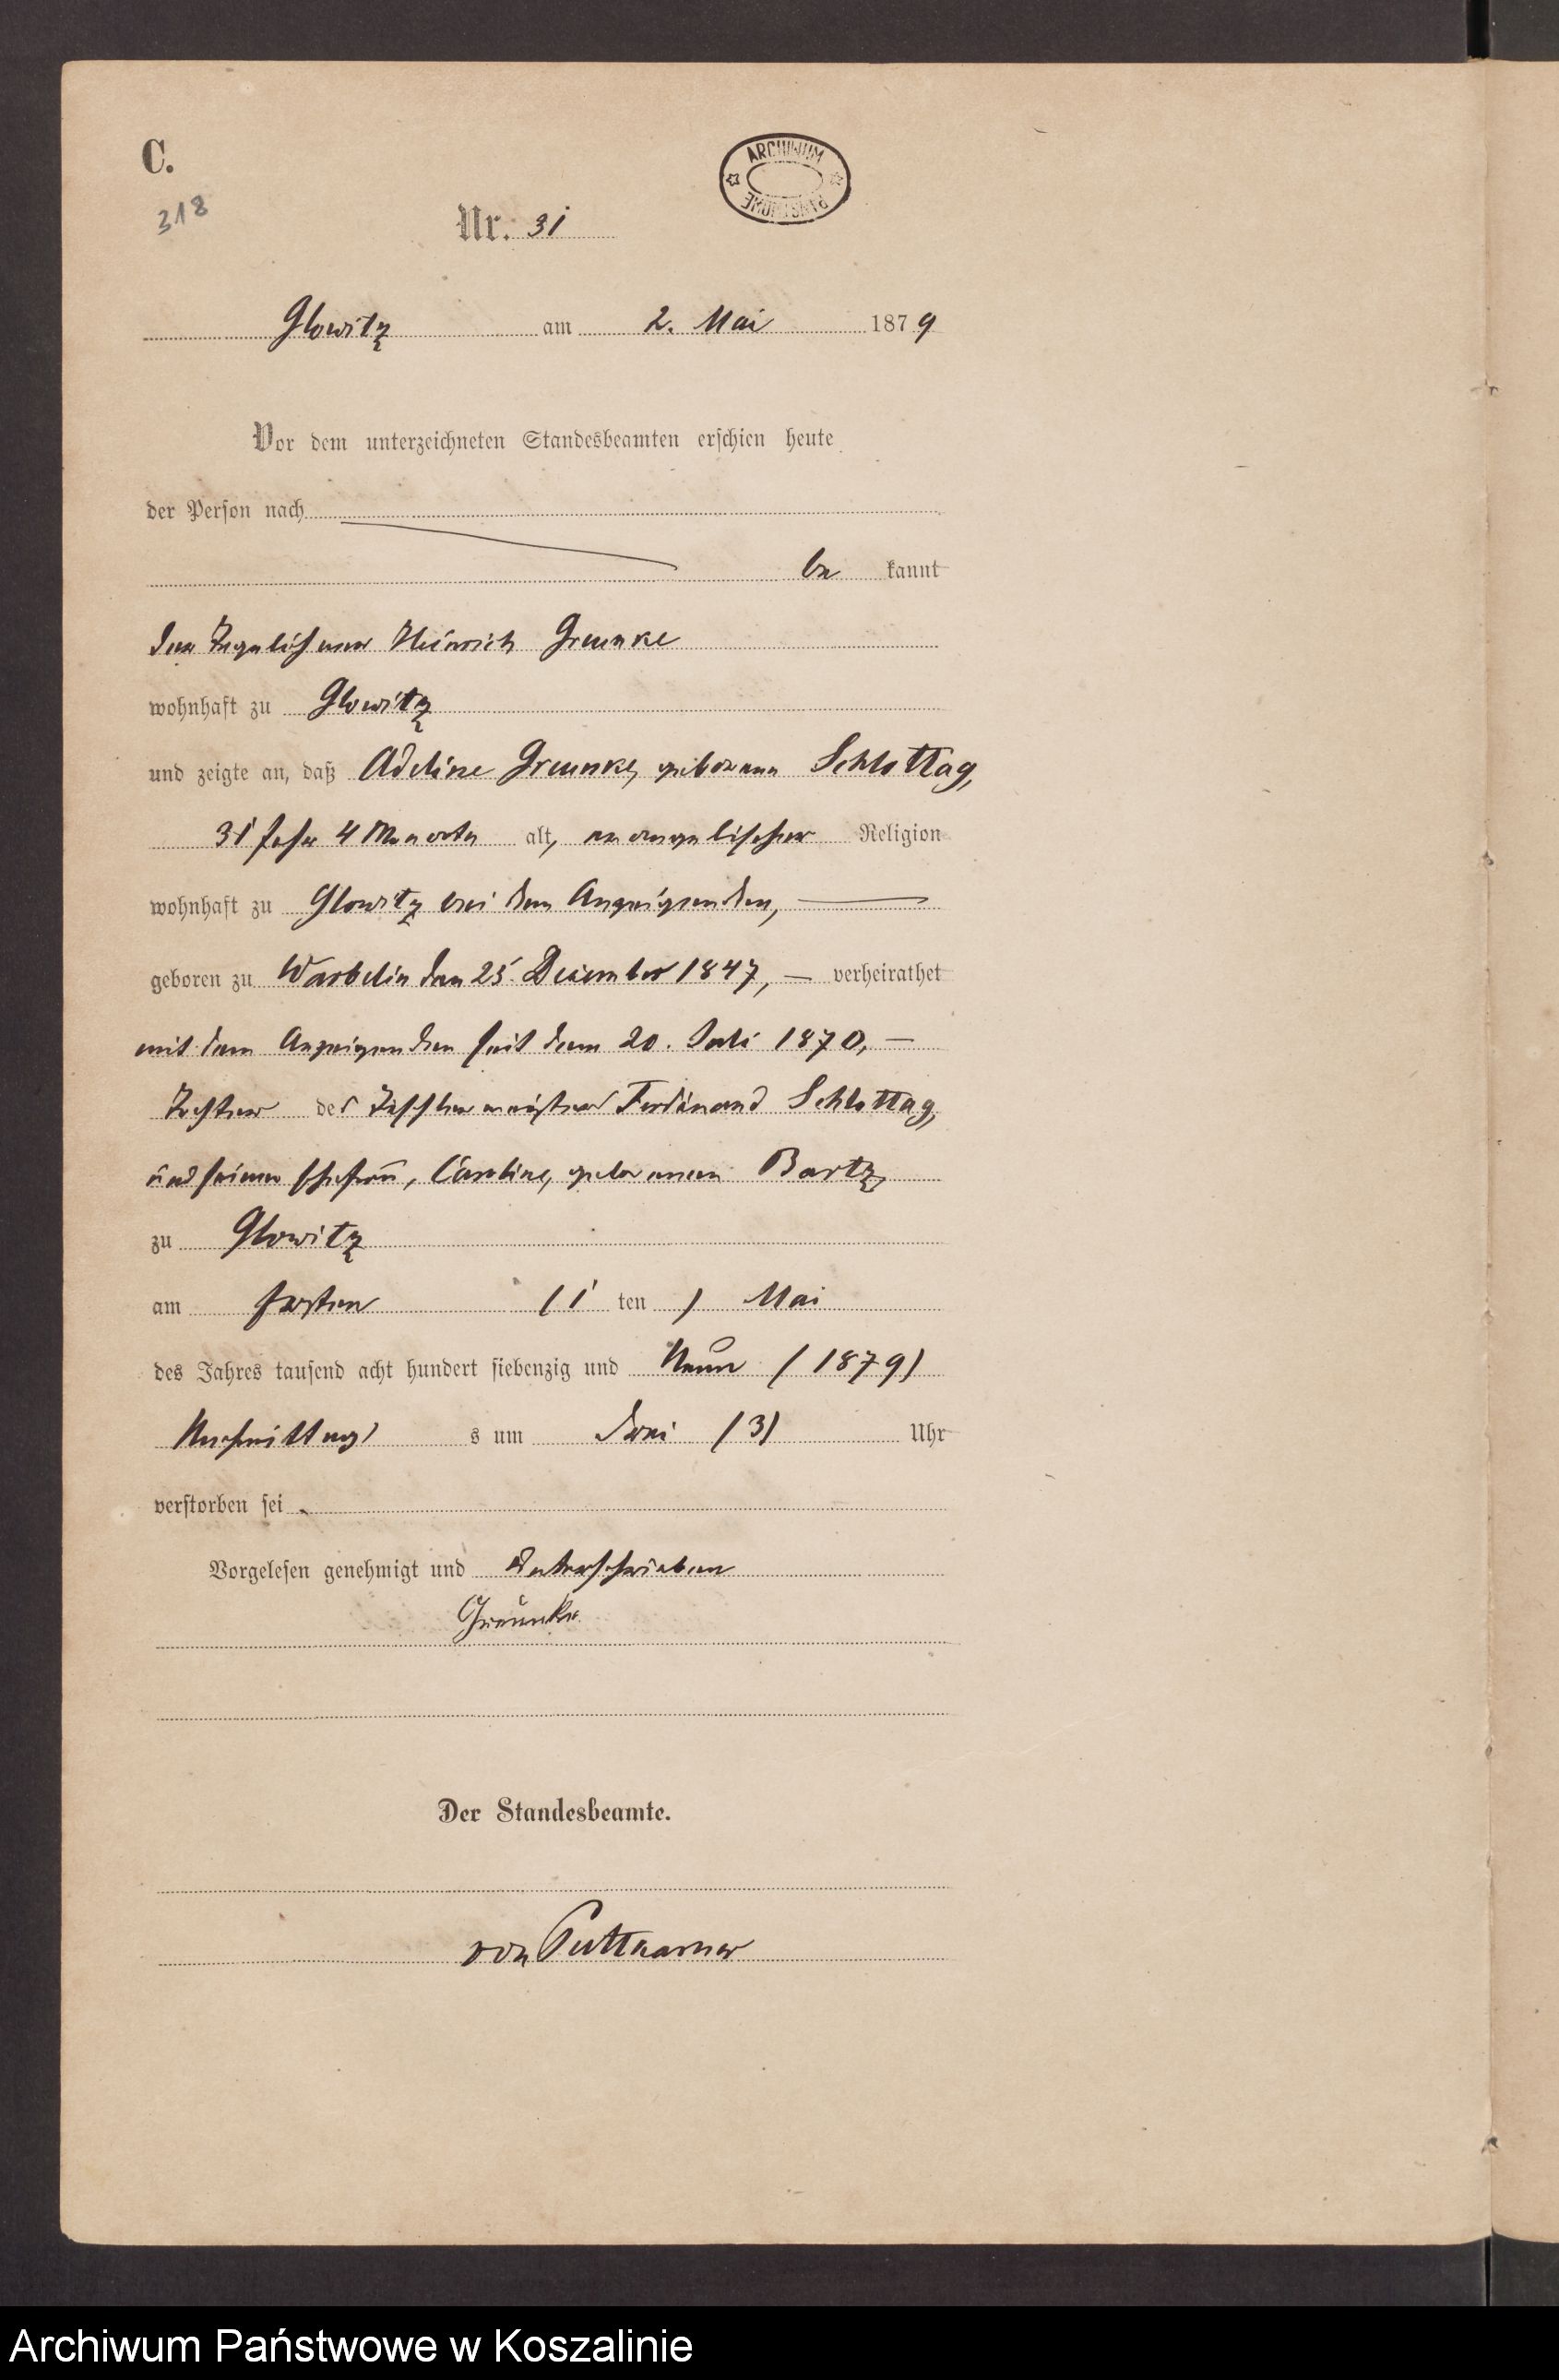 C.
318
ARCHIWUM PAŃSTWOWE
Nr. 31
Glowitz am 2. Mai 1879
Vor dem unterzeichneten Standesbeamten erschien heute
der Person nach
be kannt
der Heinrich Greunke
wohnhaft zu Glowitz
und zeigte an, daß Adeline Greunke, geborenen Schlottag,
31 Jahr 4 Monate alt, evangelischer Religion
wohnhaft zu Glowitz bei dem Anzeigenden,
geboren zu Warbelin den 25. Dezember 1847, — verheirathet
mit dem Anzeigenden seit dem 20. Juli 1870, —
Tochter des Tischlermeisters Ferdinand Schlottag,
und seiner Ehefrau, Caroline, geborenen Bartz,
zu Glowitz
am ersten (1 ten ) Mai
des Jahres tausend acht hundert siebenzig und Neun (1879)
Nachmittags s um drei (3) Uhr
verstorben sei.
Vorgelesen genehmigt und unterschrieben
Greunke
Der Standesbeamte.
von Puttkamer
Archiwum Państwowe w Koszalinie